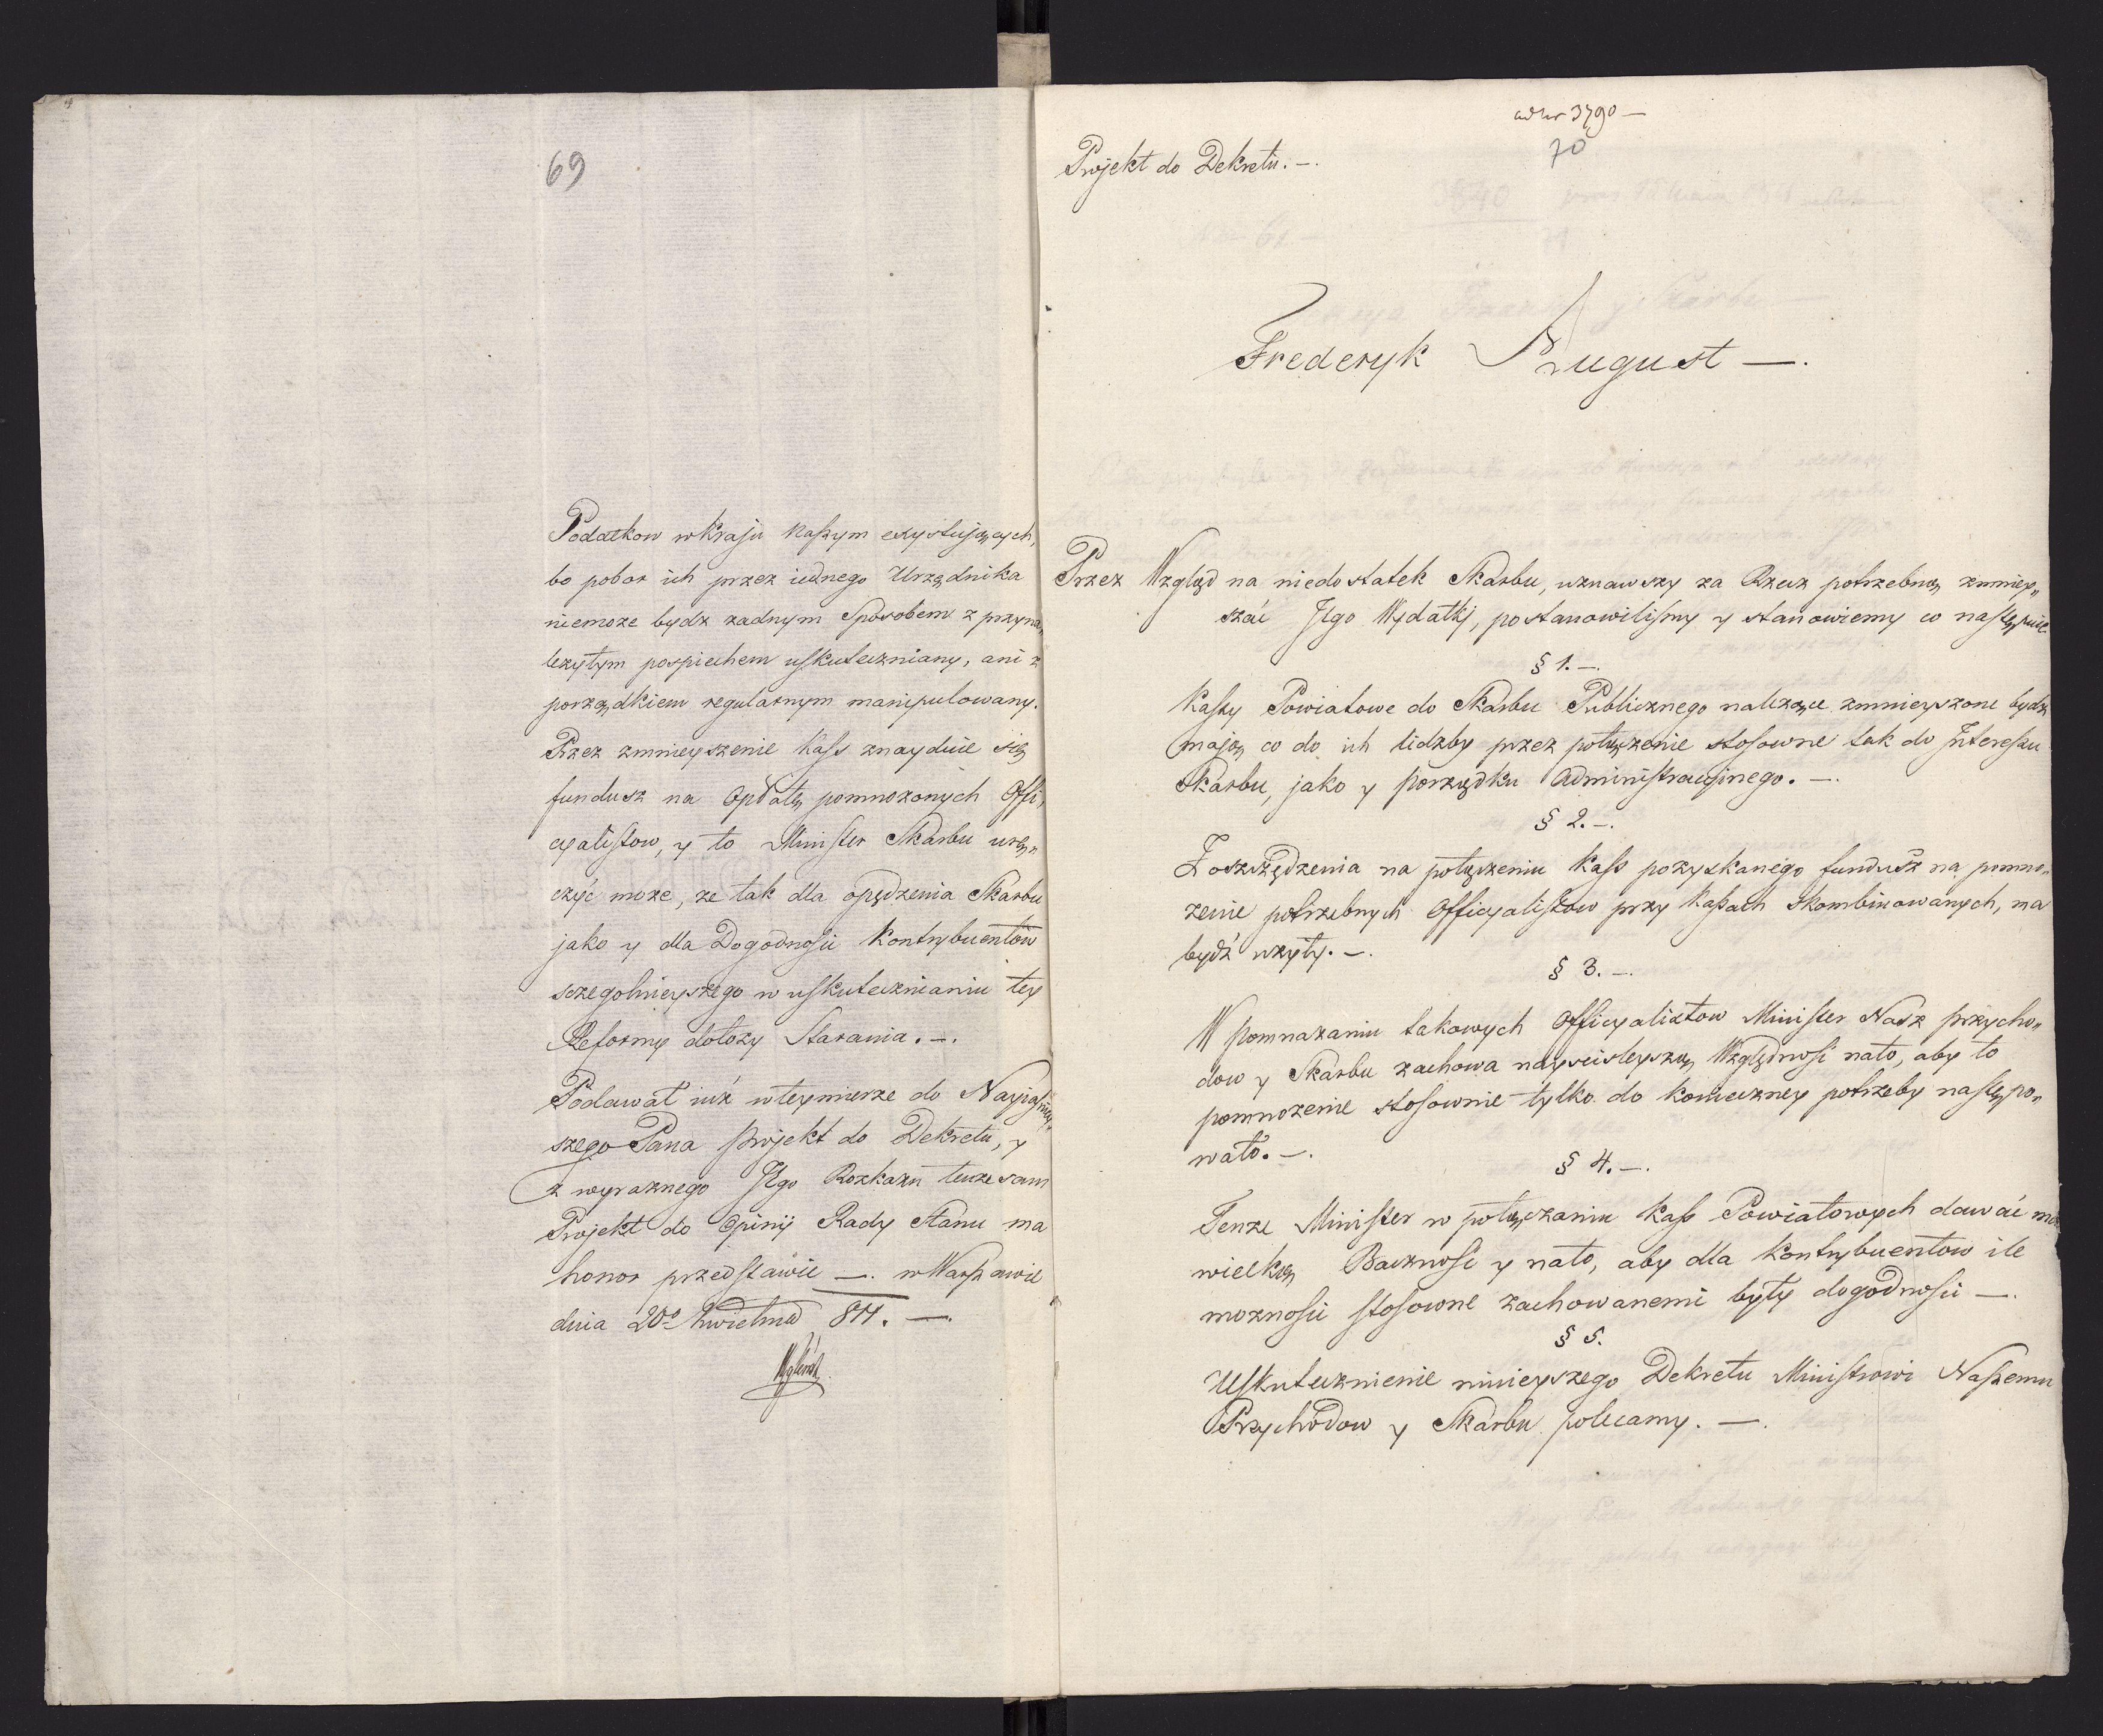 69
Podatkow w Kraju naszym exystujących,
bo pobor ich przez iednego Urzędnika
niemoze bydz zadnym Sposobem z przyna„
lezytym pospiechem uskuteczniany, ani z
porządkiem regularnym manipulowany.
Przez zmnieyszenie Kass znaydzie się
fundusz na Opłatę pomnozonych Offi„
cyalistow, y to Minister Skarbu urę„
czyć moze, ze tak dla opędzenia Skarbu
jako y dla Dogodnosci Kontrybuentów
szczegolnieyszego w uskutecznianiu tey
Reformy dołozy Starania.—.
Podawał iuż wteymierze do Nayjaśniey„
szego Pana projekt do Dekretu, y
z wyraznego Jego Rozkazu tenze sam
Projekt do Opinij Rady Stanu ma
honor przedstawic —. w Warszawie
dnia 20º Kwietnia 811. —.
ad Nr 3790 —
70
Projekt do Dekretu.—.
Frederyk August —.
Przez Wzgląd na niedostatek Skarbu, uznawszy za Rzecz potrzebną zmniey„
szać Jego Wydatkj, postanowilismy y stanowiemy co następuie
§ 1.—.
Kassy Powiatowe do Skarbu Publicznego nalezące zmnieyszone bydz
mają co do ich liczby przez połączenie stosowne tak do Interessu
Skarbu, jako y porządku Administracyjnego.—.
§ 2.—.
Z oszczędzenia na połączeniu Kass pozyskanego fundusz na pomno„
zenie potrzebnych Officyalistow przy Kassach Skombinowanych, ma
bydź uzyty.—.
§ 3.—.
W pomnazaniu takowych Officyalistow Minister Nasz przycho„
dow y Skarbu zachowa nayscisleyszą Względnosć nato, aby to
pomnozenie stosownie tylko do konieczney potrzeby następo„
wało.—.
§ 4.—.
Tenze Minister w połączaniu Kass Powiatowych dawać ma
wielką Bacznosć y nato, aby dla Kontrybuentow ile
moznosci stosowne zachowanemi były dogodnosci —.
§ 5.
Uskutecznienie ninieyszego Dekretu Ministrowi Naszemu
Przychodow y Skarbu polecamy.—.